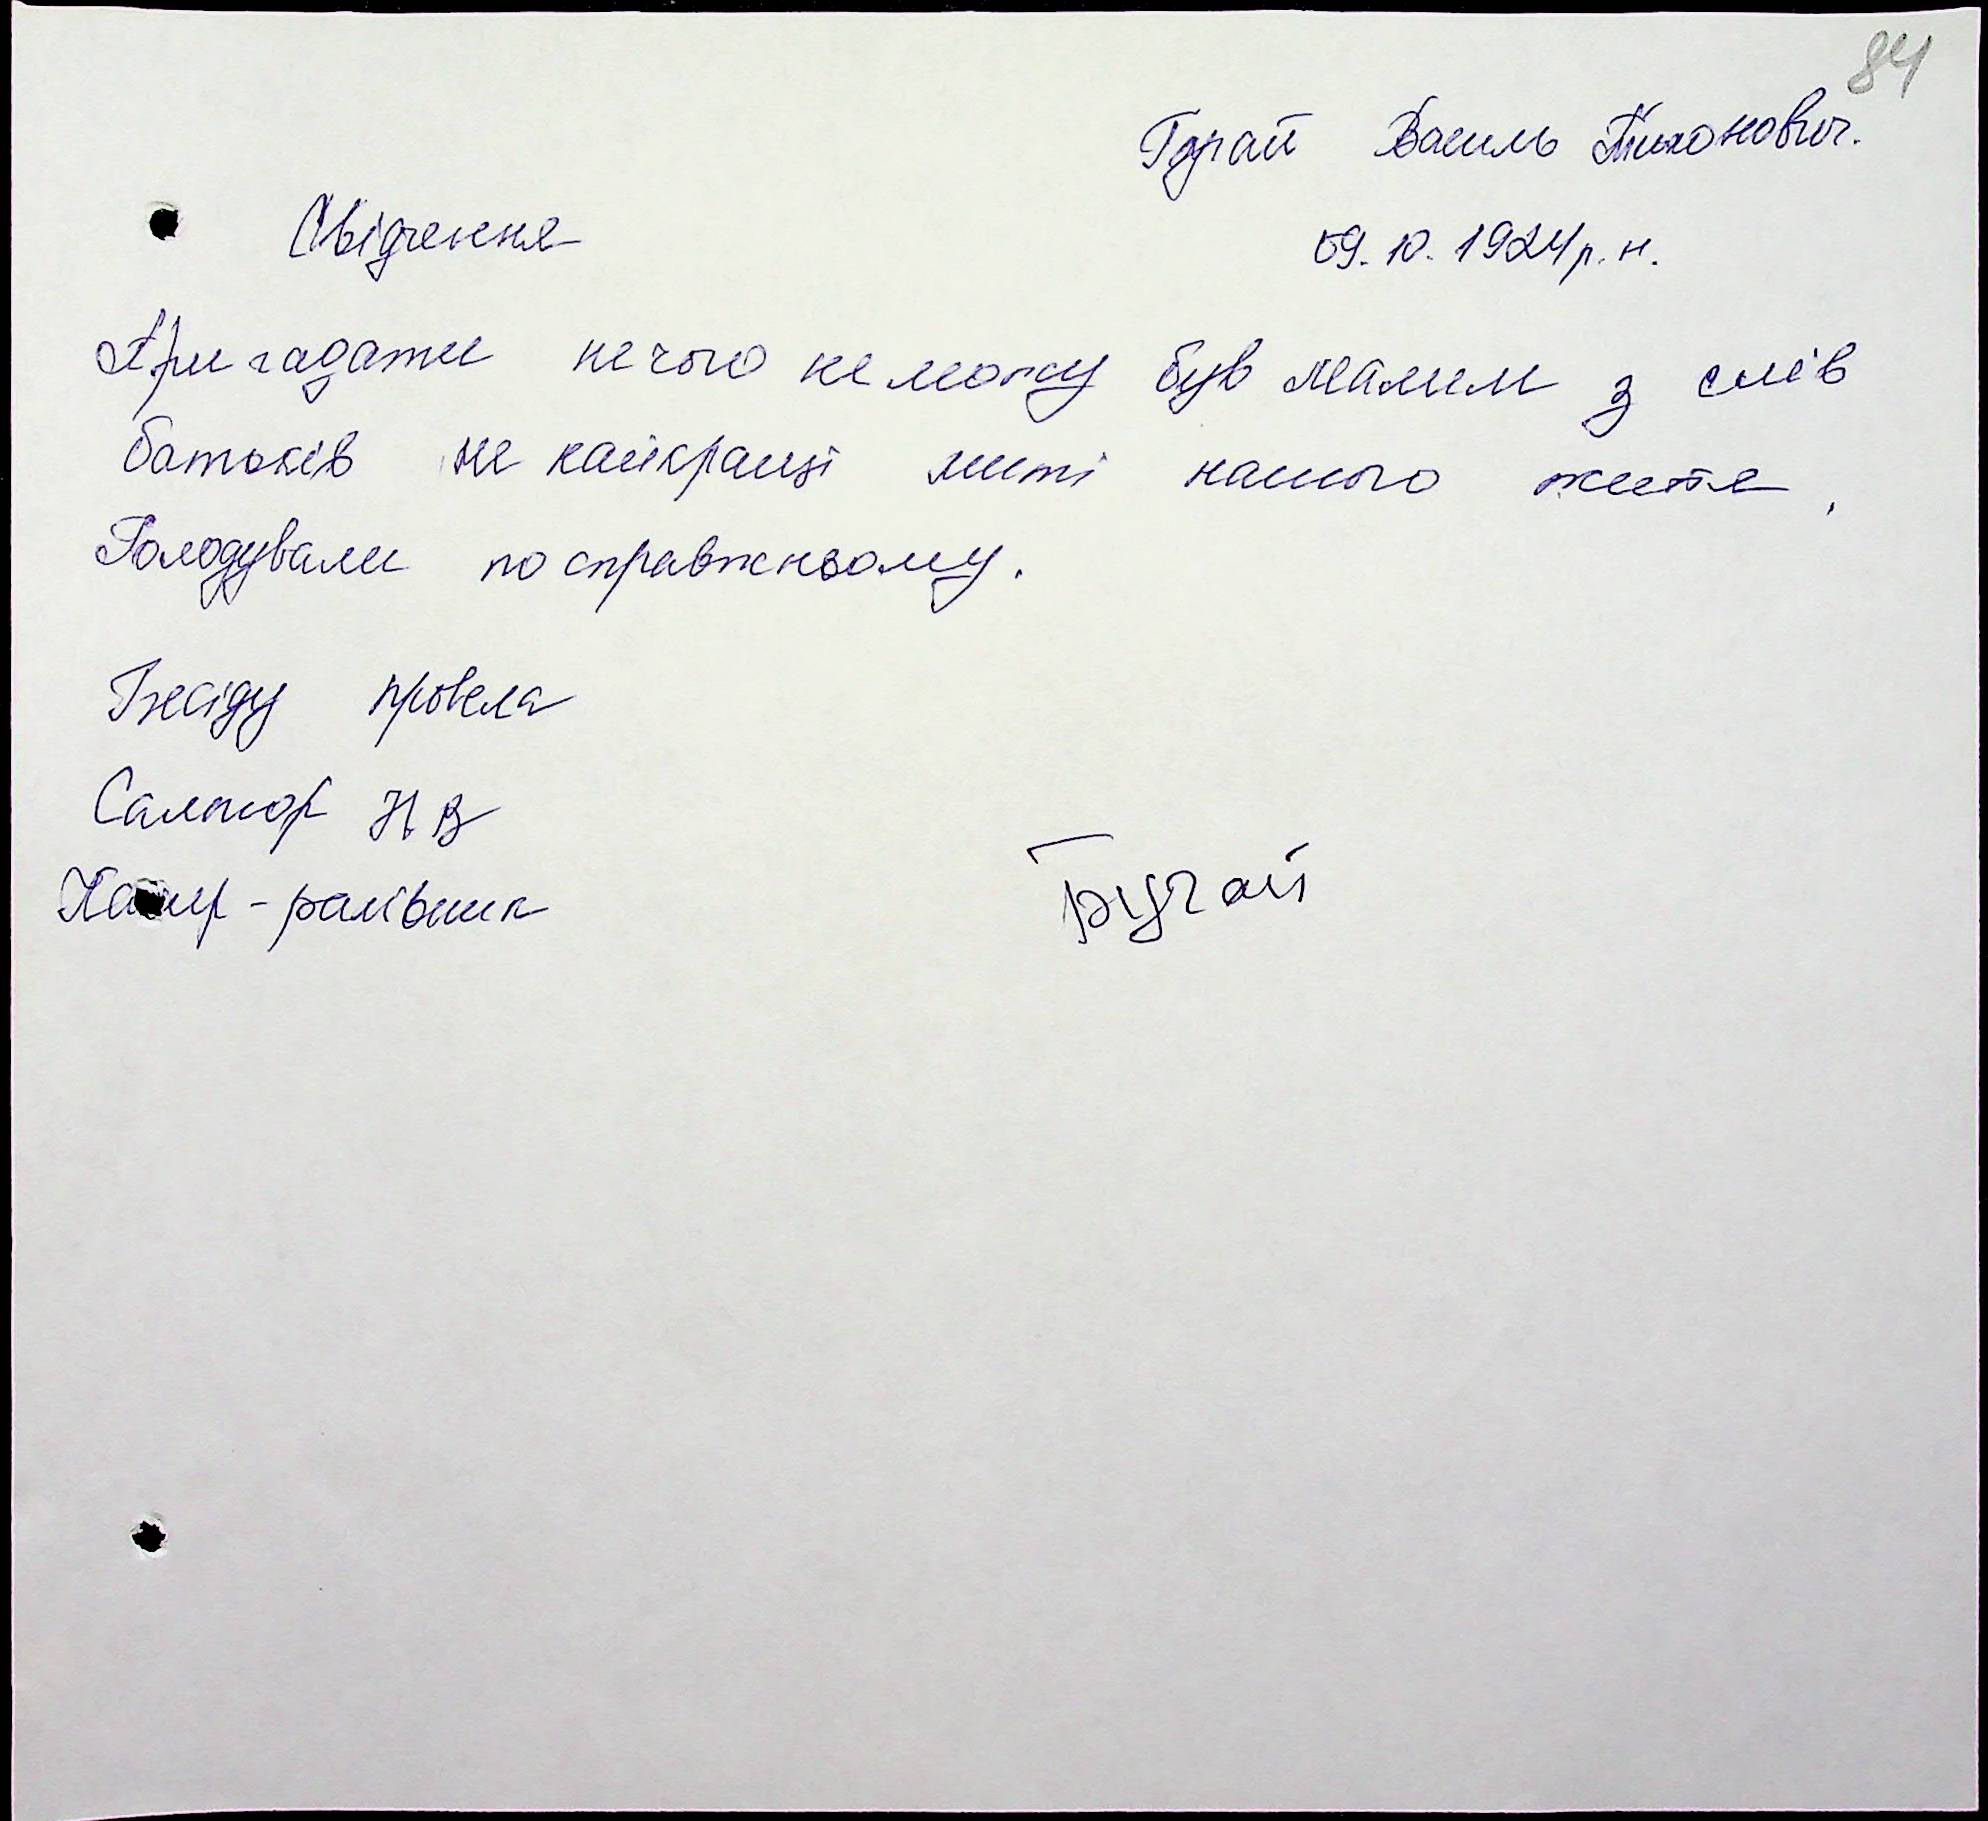 84
Бугай Василь Тихонович.
09.10.1924р.н.
Свідчення
Пригадати нечого не можу був малим з слів
батьків не найкращі миті нашого життя,
Голодували по справжньому.
Бесіду провела
Салтиор Н В
Касир - рахівник
Бугай